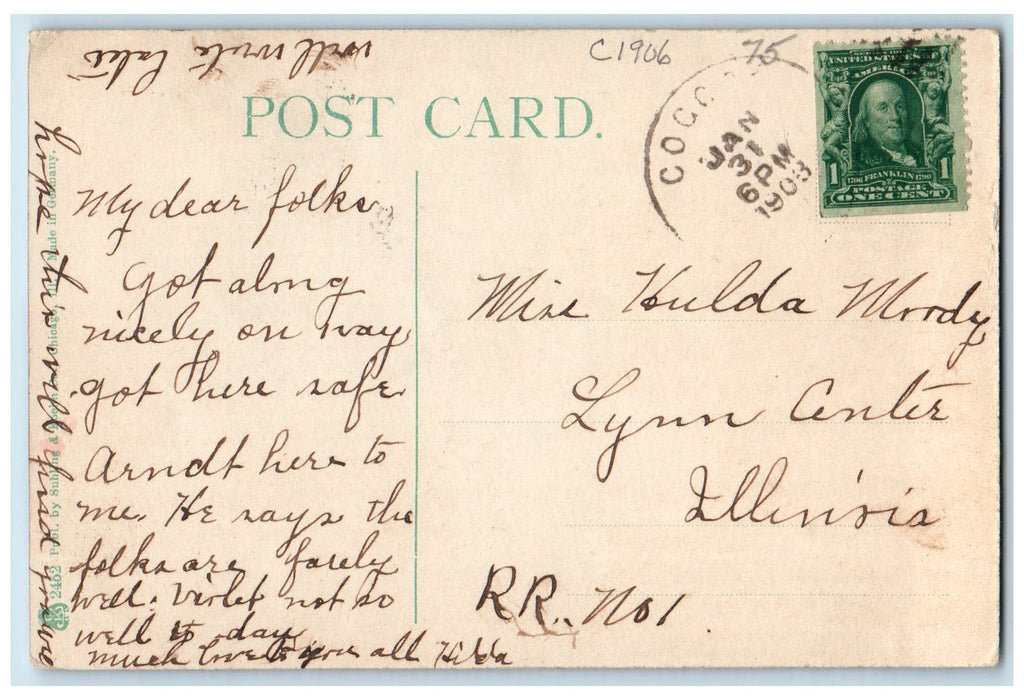 will write later
C1906
75
POST CARD.
COGG
JAN
31
6PM
1908
UNITED STATES OF
AMERICA
1
1
1706 FRANKLIN 1790
POSTAGE
ONE CENT
My dear folks
Got along
nicely on way
got here safe
Arndt here to
me. He says the
folks are farely
well. Violet not so
well to day
much love to you all Hilda
hope this will find you
2452 Pub. by Suhling & Chicago, Ill. Made in Germany.
Miss Hulda Moody
Lynn Center
Illinois
RR. No 1